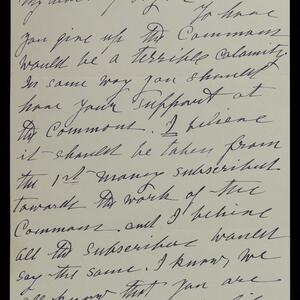 To have
you give up the Commons
would be a terrible calamity.
In some way you should
have your support at
the Commons. I believe
it should be taken from
the 1st money subscribed
towards the work of the
Commons. and I believe
all the subscribers would
say the same. I know, we
all know that you are